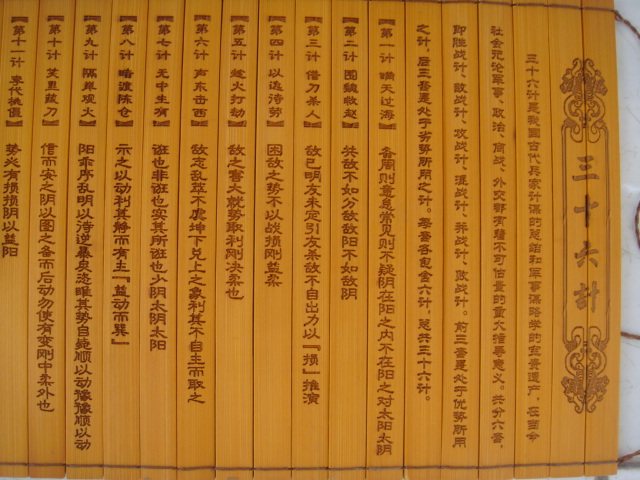 三十六计
三十六计是我国古代兵家计谋的总结和军事谋略学的宝贵遗产，在当今
社会无论军事、政治、商战、外交都有着不可估量的重大指导意义。共分六套，
即胜战计、敌战计、攻战计、混战计、并战计、败战计。前三套是处于优势所用
之计，后三套是处于劣势所用之计。每套各包含六计，总共三十六计。
【第一计 瞒天过海】 备周则意怠常见则不疑阴在阳之内不在阳之对太阳太阴
【第二计 围魏救赵】 共敌不如分敌敌阳不如敌阴
【第三计 借刀杀人】 敌已明友未定引友杀敌不自出力以『损』推演
【第四计 以逸待劳】 困敌之势不以战损刚益柔
【第五计 趁火打劫】 敌之害大就势取利刚决柔也
【第六计 声东击西】 敌志乱萃不虞坤下兑上之象利其不自主而取之
【第七计 无中生有】 诳也非诳也实其所诳也少阴太阴太阳
【第八计 暗渡陈仓】 示之以动利其静而有主『益动而巽』
【第九计 隔岸观火】 阳乖序乱阴以待逆暴戾恣睢其势自毙顺以动豫豫顺以动
【第十计 笑里藏刀】 信而安之阴以图之备而后动勿使有变刚中柔外也
【第十一计 李代桃僵】 势必有损损阴以益阳